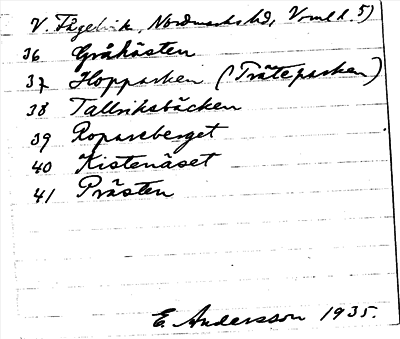 V. Fågelvik, Nordmarks hd, Vrml l. 5)
36 Gråkåsten
37 Hopparken (Träteparken)
38 Tallriksbäcken
39 Ropareberget
40 Kistenäset
41 Prästen
E. Andersson 1935.